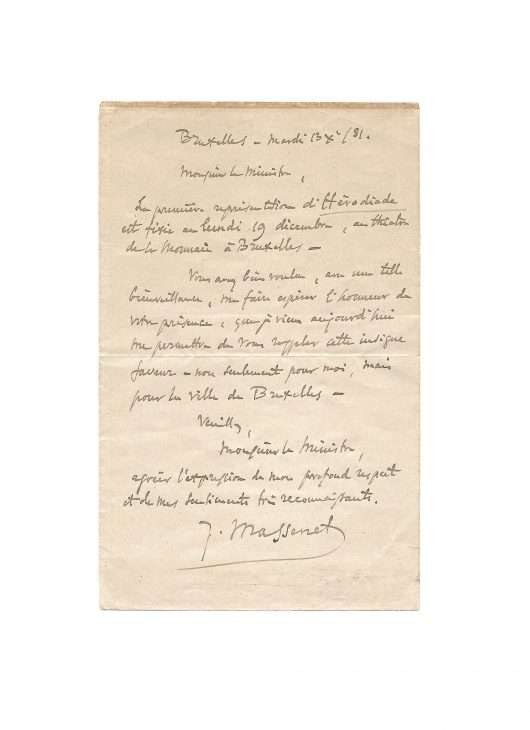 Bruxelles – Mardi 13 Xe/81.
Monsieur le Ministre,
La première représentation d'Hérodiade
est fixée au lundi 19 décembre, au théâtre
de la Monnaie à Bruxelles –
Vous avez bien voulu, avec une telle
bienveillance, me faire espérer l'honneur de
votre présence, que je viens aujourd'hui
me permettre de vous rappeler cette insigne
faveur – non seulement pour moi, mais
pour la ville de Bruxelles –
Veuillez,
Monsieur le Ministre,
agréer l'expression de mon profond respect
et de mes sentiments très reconnaissants.
J. Massenet